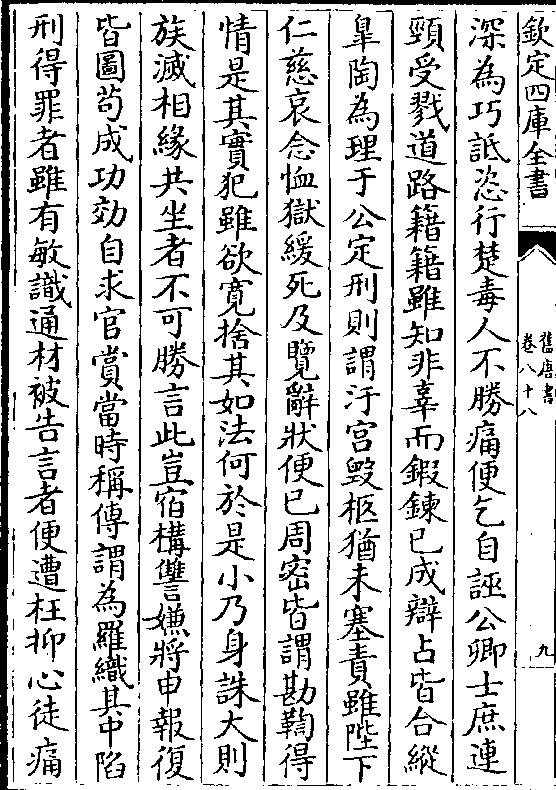 欽定四庫全書
舊唐書
卷八十八
九
深為巧詆恣行楚毒人不勝痛便乞自誣公卿士庶連
頸受戮道路籍籍雖知非辜而鍛鍊已成辯占皆合縱
臯陶為理于公定刑則謂汙宮毀柩猶未塞責雖陛下
仁慈哀念恤獄緩死及覽辭狀便已周密皆謂勘鞫得
情是其實犯雖欲寛捨其如法何於是小乃身誅大則
族滅相緣共坐者不可勝言此豈宿構讐嫌將申報復
皆圖苟成功効自求官賞當時稱傳謂為羅織其中陷
刑得罪者雖有敏識通材被告言者便遭枉抑心徒痛